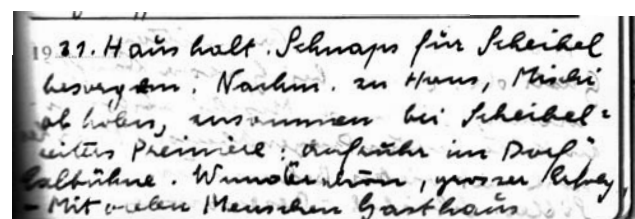 1931. Haushalt. Schnaps für Scheibel
besorgen. Nachm. zu Haus, Mischi
abholen, zusammen bei Scheibel=
reiters Premiere: Aufruhr im Dorf"
. Wunderschön, grosser Erfolg,
- Mit vielen Menschen Gasthaus